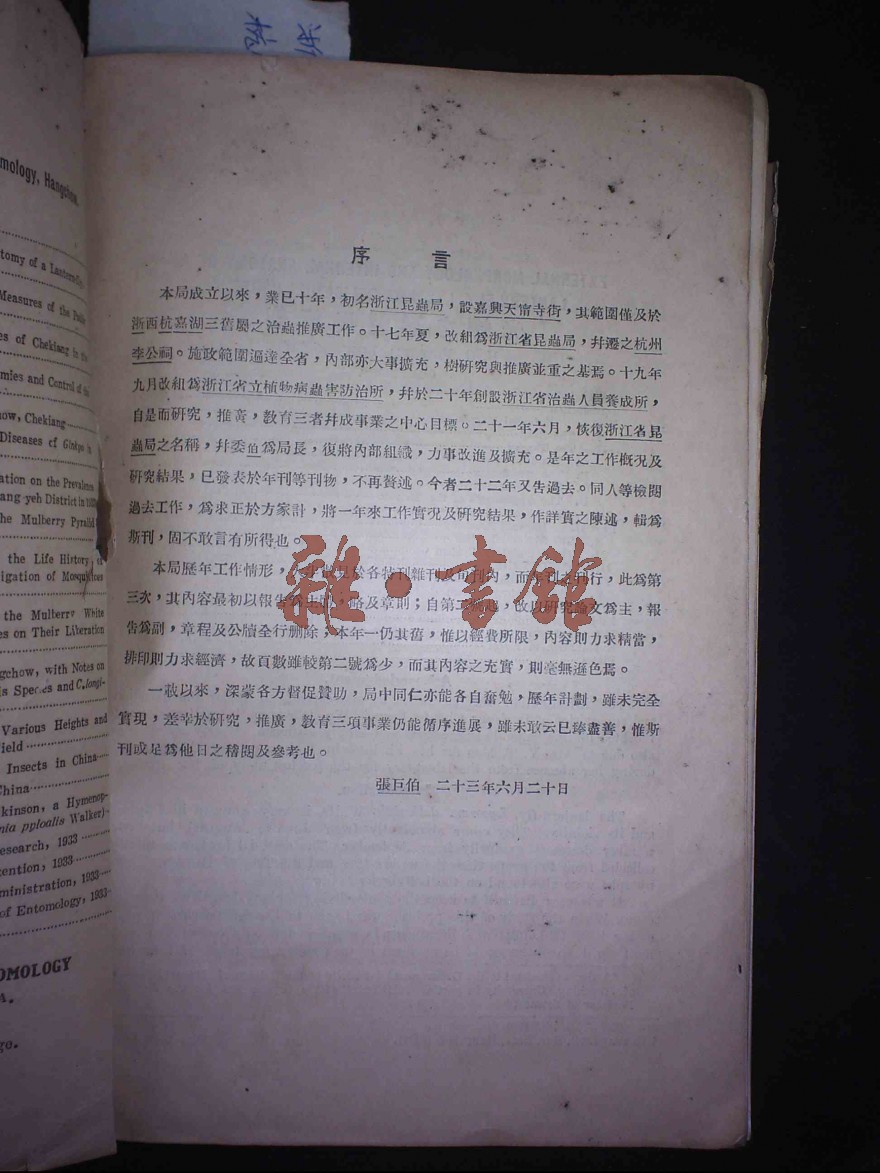 浙
杭
omology, Hangchow.
tomy of a Lanternfly,
Measures of the
es of Chekiang in the
mies and Control of the
how, Chekiang
Diseases of Ginkgo in
ation on the Prevalence
ang-yeh District in 1933
he Mulberry Pyralid
the Life History of
igation of Mosquitoes
the Mulberry White
es on Their Liberation
gchow, with Notes on
is Species and C. longi-
Various Heights and
ield
Insects in China
China
kinson, a Hymenop-
nia pploalis Walker)
esearch, 1933
ention, 1933
ministration, 1933
of Entomology, 1933
OMOLOGY
A.
go.
序 言
本局成立以來，業已十年，初名浙江昆蟲局，設嘉興天甯寺街，其範圍僅及於
浙西杭嘉湖三舊屬之治蟲推廣工作。十七年夏，改組爲浙江省昆蟲局，幷遷之杭州
李公祠。施政範圍遍達全省，內部亦大事擴充，樹研究與推廣並重之基焉。十九年
九月改組爲浙江省立植物病蟲害防治所，幷於二十年創設浙江省治蟲人員養成所，
自是而研究，推廣，敎育三者幷成事業之中心目標。二十一年六月，恢復浙江省昆
蟲局之名稱，幷委伯爲局長，復將內部組織，力事改進及擴充。是年之工作概况及
研究結果，已發表於年刊等刊物，不再贅述。今者二十二年又告過去。同人等檢閱
過去工作，爲求正於方家計，將一年來工作實况及研究結果，作詳實之陳述，輯爲
斯刊，固不敢言有所得也。
本局歷年工作情形，見於各特刊雜刊及旬刊內，而年刊之刊行，此爲第
三次，其內容最初以報告爲主，略及章則；自第二號起，改以研究論文爲主，報
告爲副，章程及公牘全行刪除；本年一仍其舊，惟以經費所限，內容則力求精當，
排印則力求經濟，故頁數雖較第二號爲少，而其內容之充實，則毫無遜色焉。
一載以來，深蒙各方督促贊助，局中同仁亦能各自奮勉，歷年計劃，雖未完全
實現，差幸於研究，推廣，敎育三項事業仍能循序進展，雖未敢云已臻盡善，惟斯
刊或足爲他日之稽閱及參考也。
張巨伯 二十三年六月二十日
雜·書館